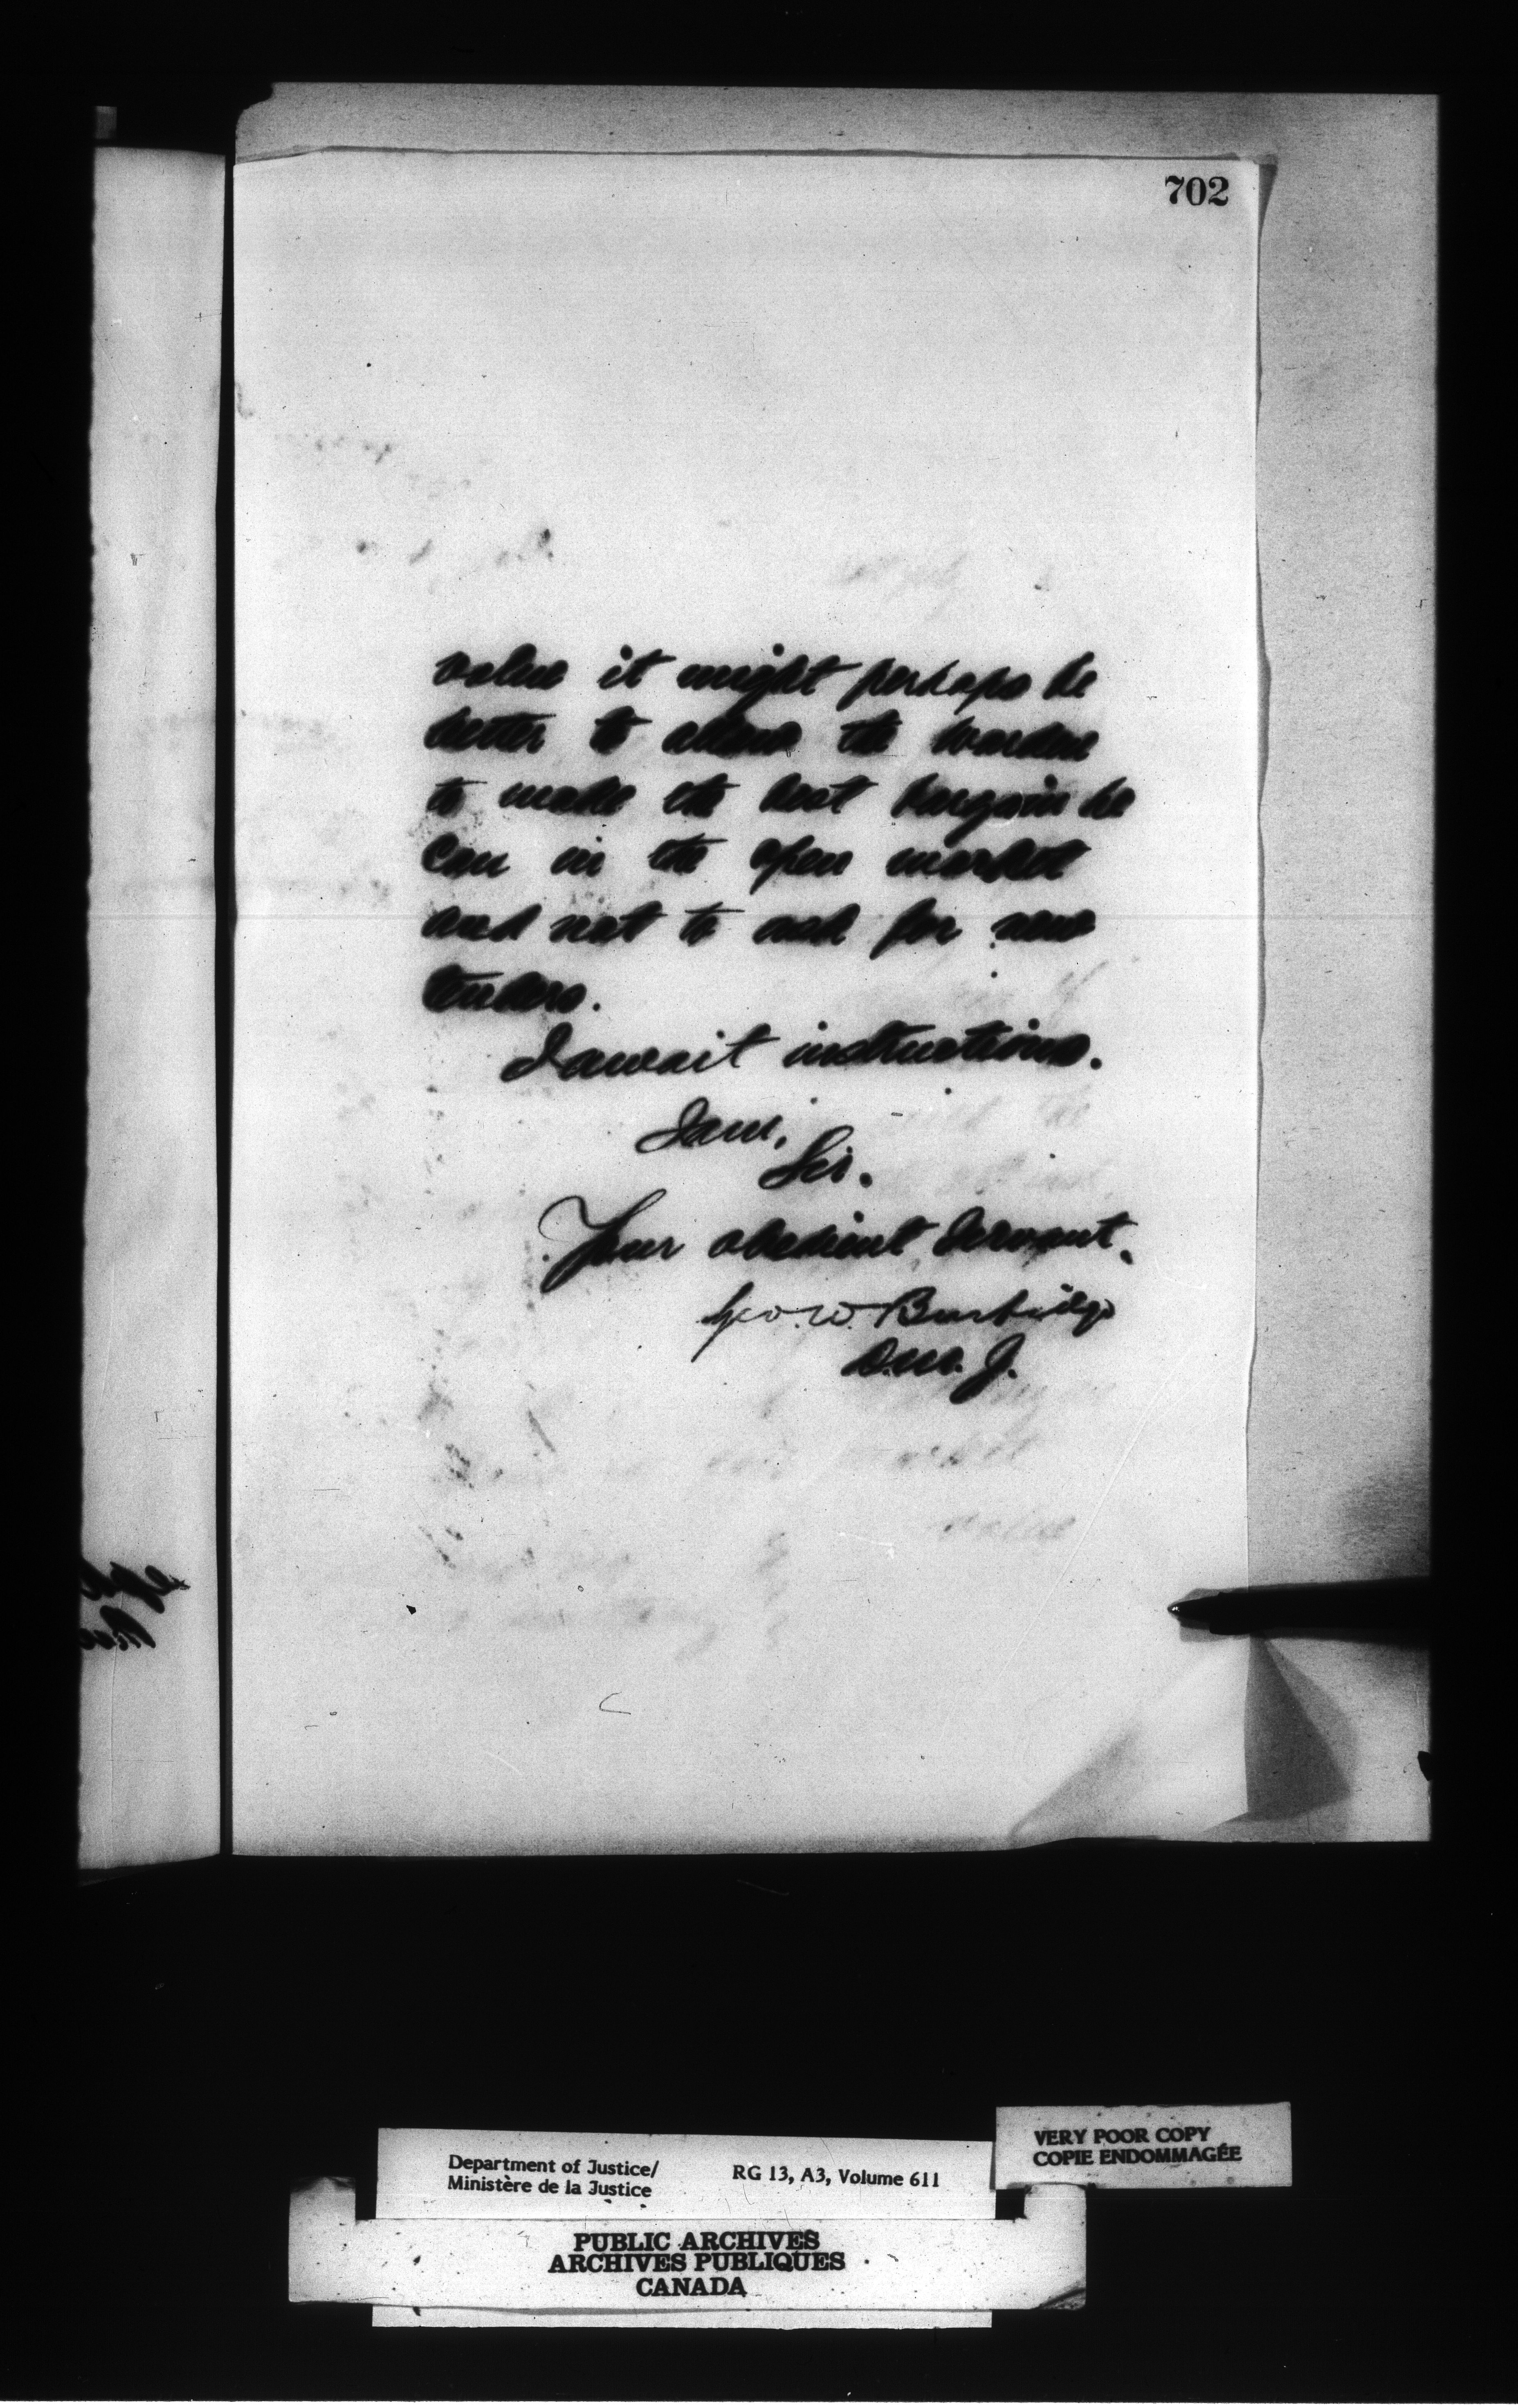 702
value it might perhaps be
better to allow the warden
to make the best bargain he
can in the open market
and not to ask for new
tenders.
I await instructions.
I am,
Sir.
Your obedient Servant.
Geo. W. Burbidge
D.M.J.
market
value
Department of Justice/
Ministère de la Justice
RG 13, A3, Volume 611
VERY POOR COPY
COPIE ENDOMMAGÉE
PUBLIC ARCHIVES
ARCHIVES PUBLIQUES
CANADA